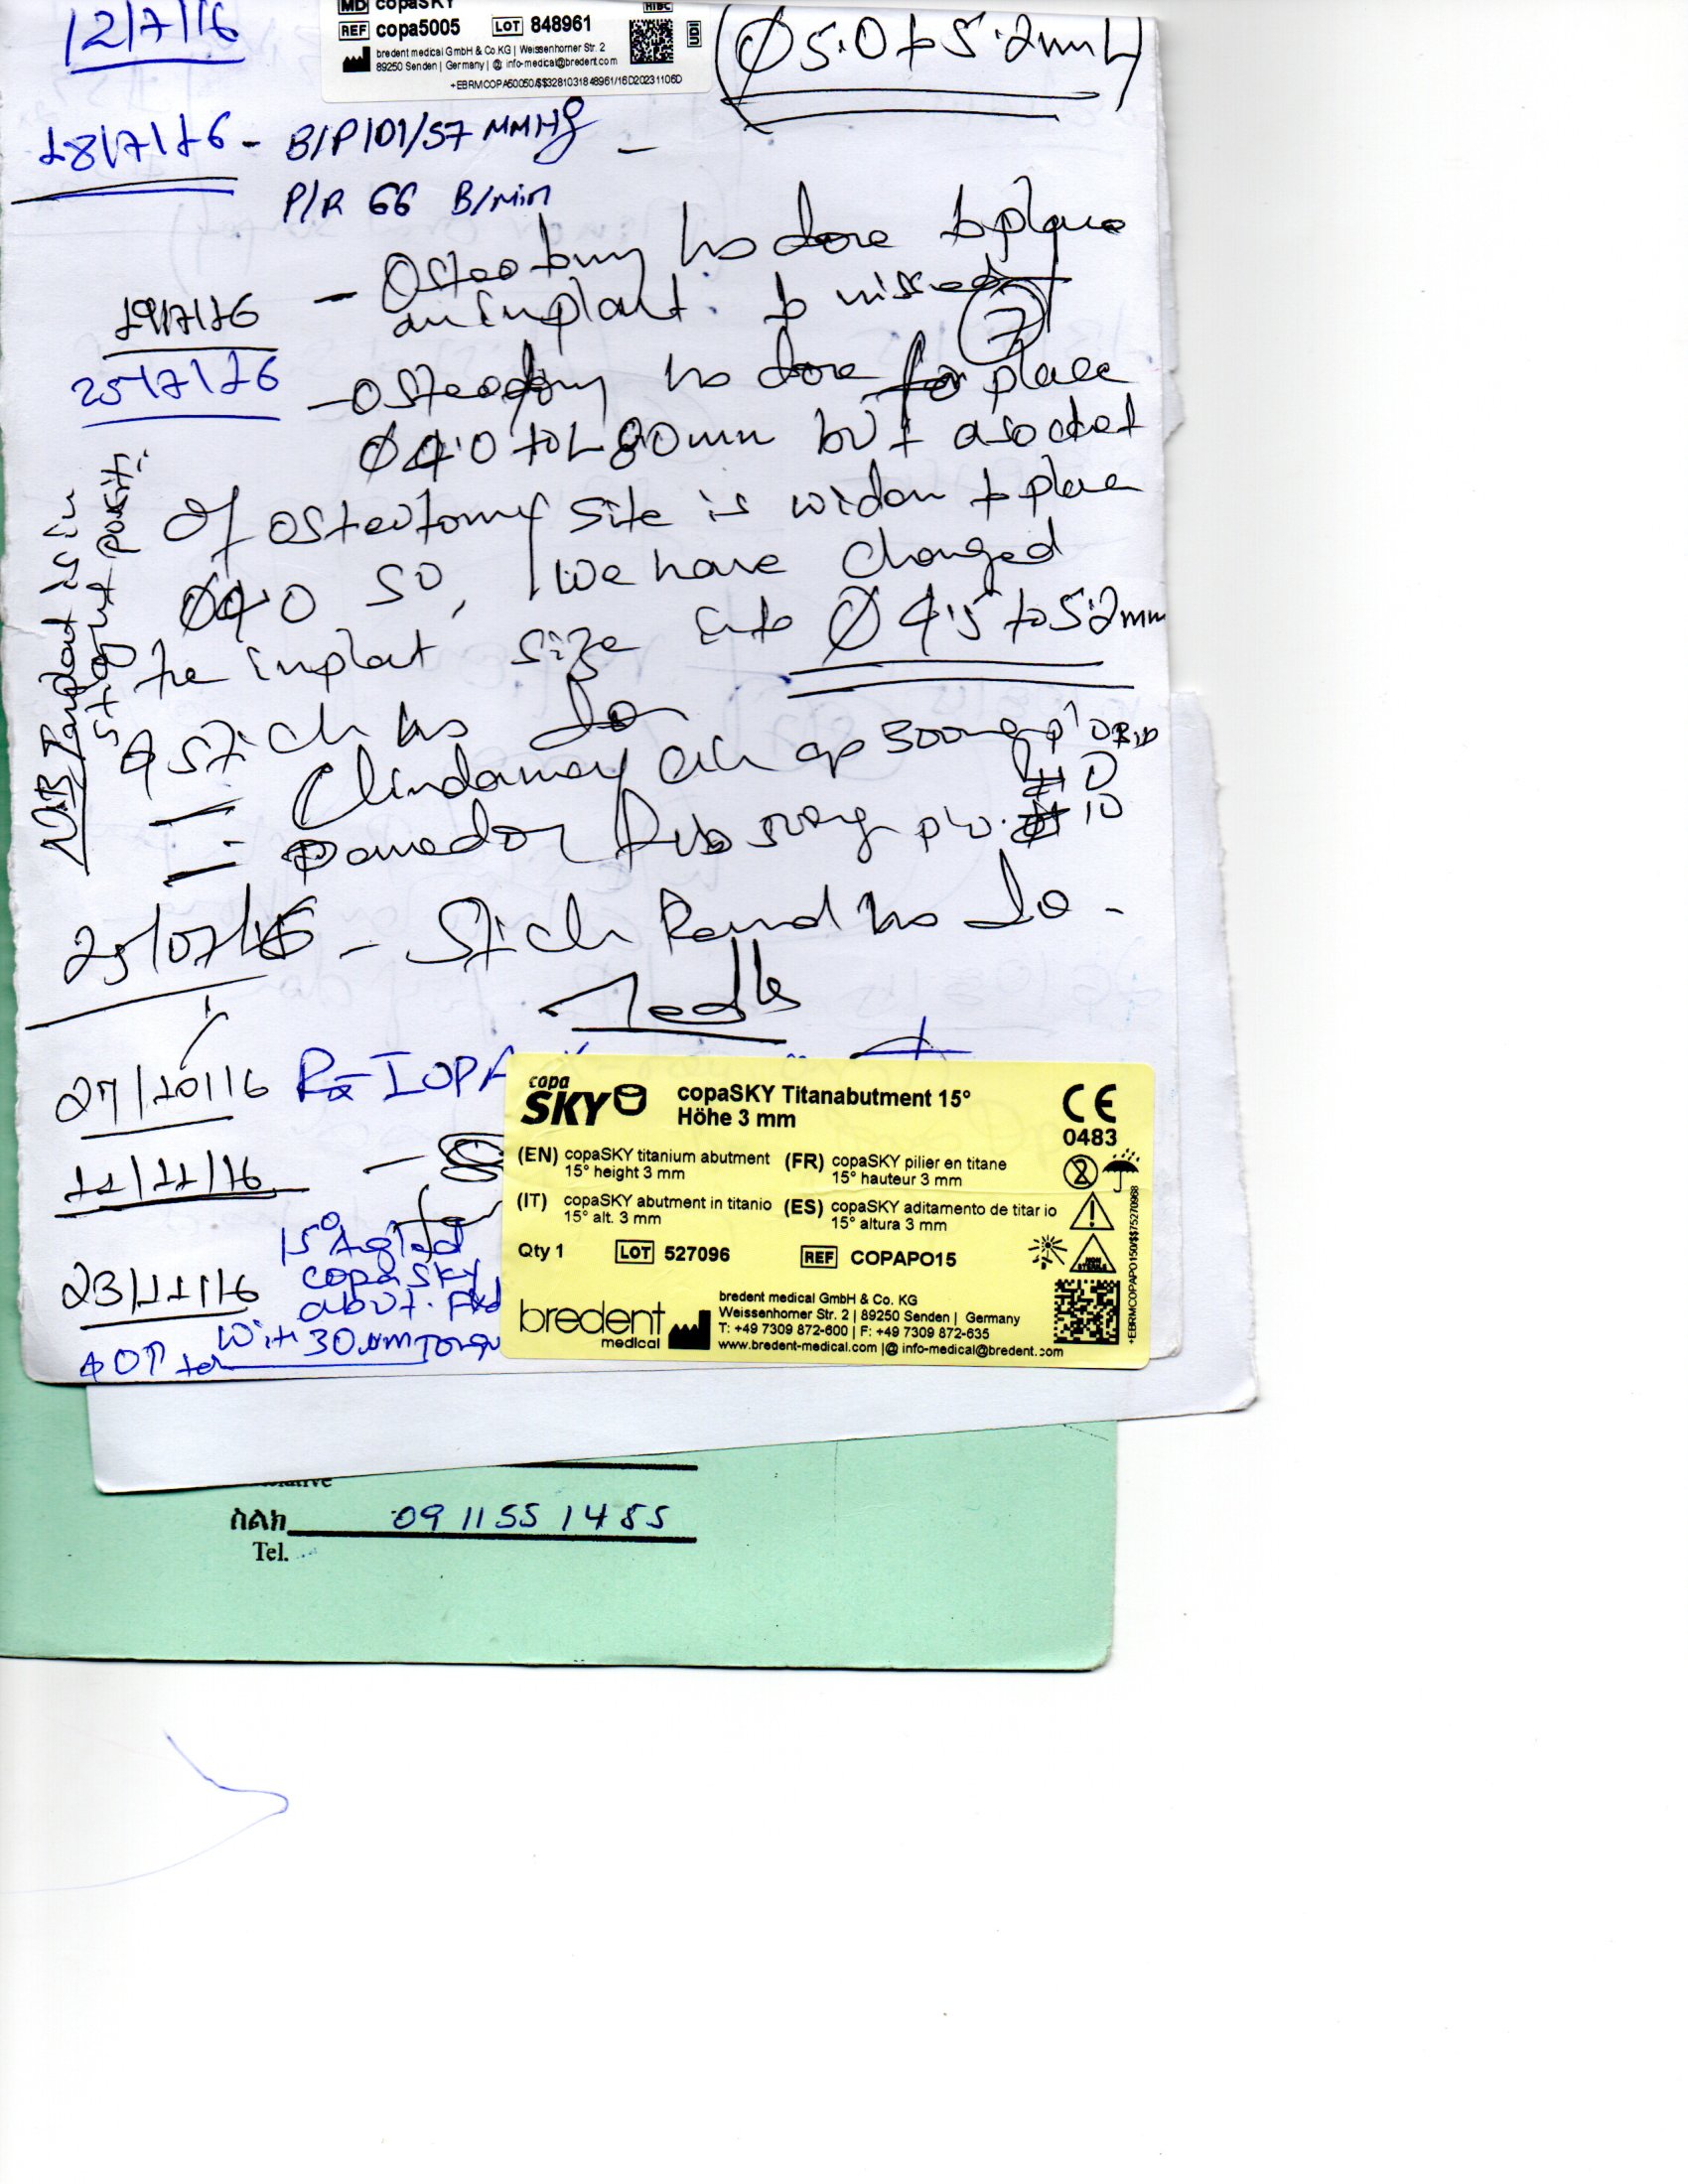 12/7/16
MD copaSKY
HIBC
REF copa5005 LOT 848961
UDI
bredent medical GmbH & Co.KG | Weissenhorner Str. 2
89250 Senden | Germany | @ info-medical@bredent.com
+EBRMCOPA50050/$$3281031848961/16D20231106D
(Ø5.0 to 5.2mm L)
18/7/16 - B/P 101/57 MMHg -
P/R 66 B/Min
19/7/16
- Osteotomy is done to place
an implant to missed
7
25/7/16
- Osteotomy is done for place
Ø4.0 to L 80mm but a socket
of osteotomy site is widen to place
Ø4.0 so, we have changed
the implant size into Ø 4.5 to 5.2mm
NB
is in
straight
stich is do
- Clindamay 300mg p.o BID
- 500mg p.o. 10
25/07/16 - Stich is do -
27/10/16 Rx IOPA
11/11/16
23/11/16
15° Agled
copa SKY
abut. Fxd
with 30
copa
SKY
copaSKY Titanabutment 15°
Höhe 3 mm
CE
0483
(EN) copaSKY titanium abutment
15° height 3 mm
(FR) copaSKY pilier en titane
15° hauteur 3 mm
(IT) copaSKY abutment in titanio
15° alt. 3 mm
(ES) copaSKY aditamento de titanio
15° altura 3 mm
Qty 1 LOT 527096 REF COPAPO15
NON STERILE
+EBRMCOPAPO150/$$75270968
bredent
medical
bredent medical GmbH & Co. KG
Weissenhorner Str. 2 | 89250 Senden | Germany
T: +49 7309 872-600 | F: +49 7309 872-635
www.bredent-medical.com | @ info-medical@bredent.com
ስልክ 0911551485
Tel.